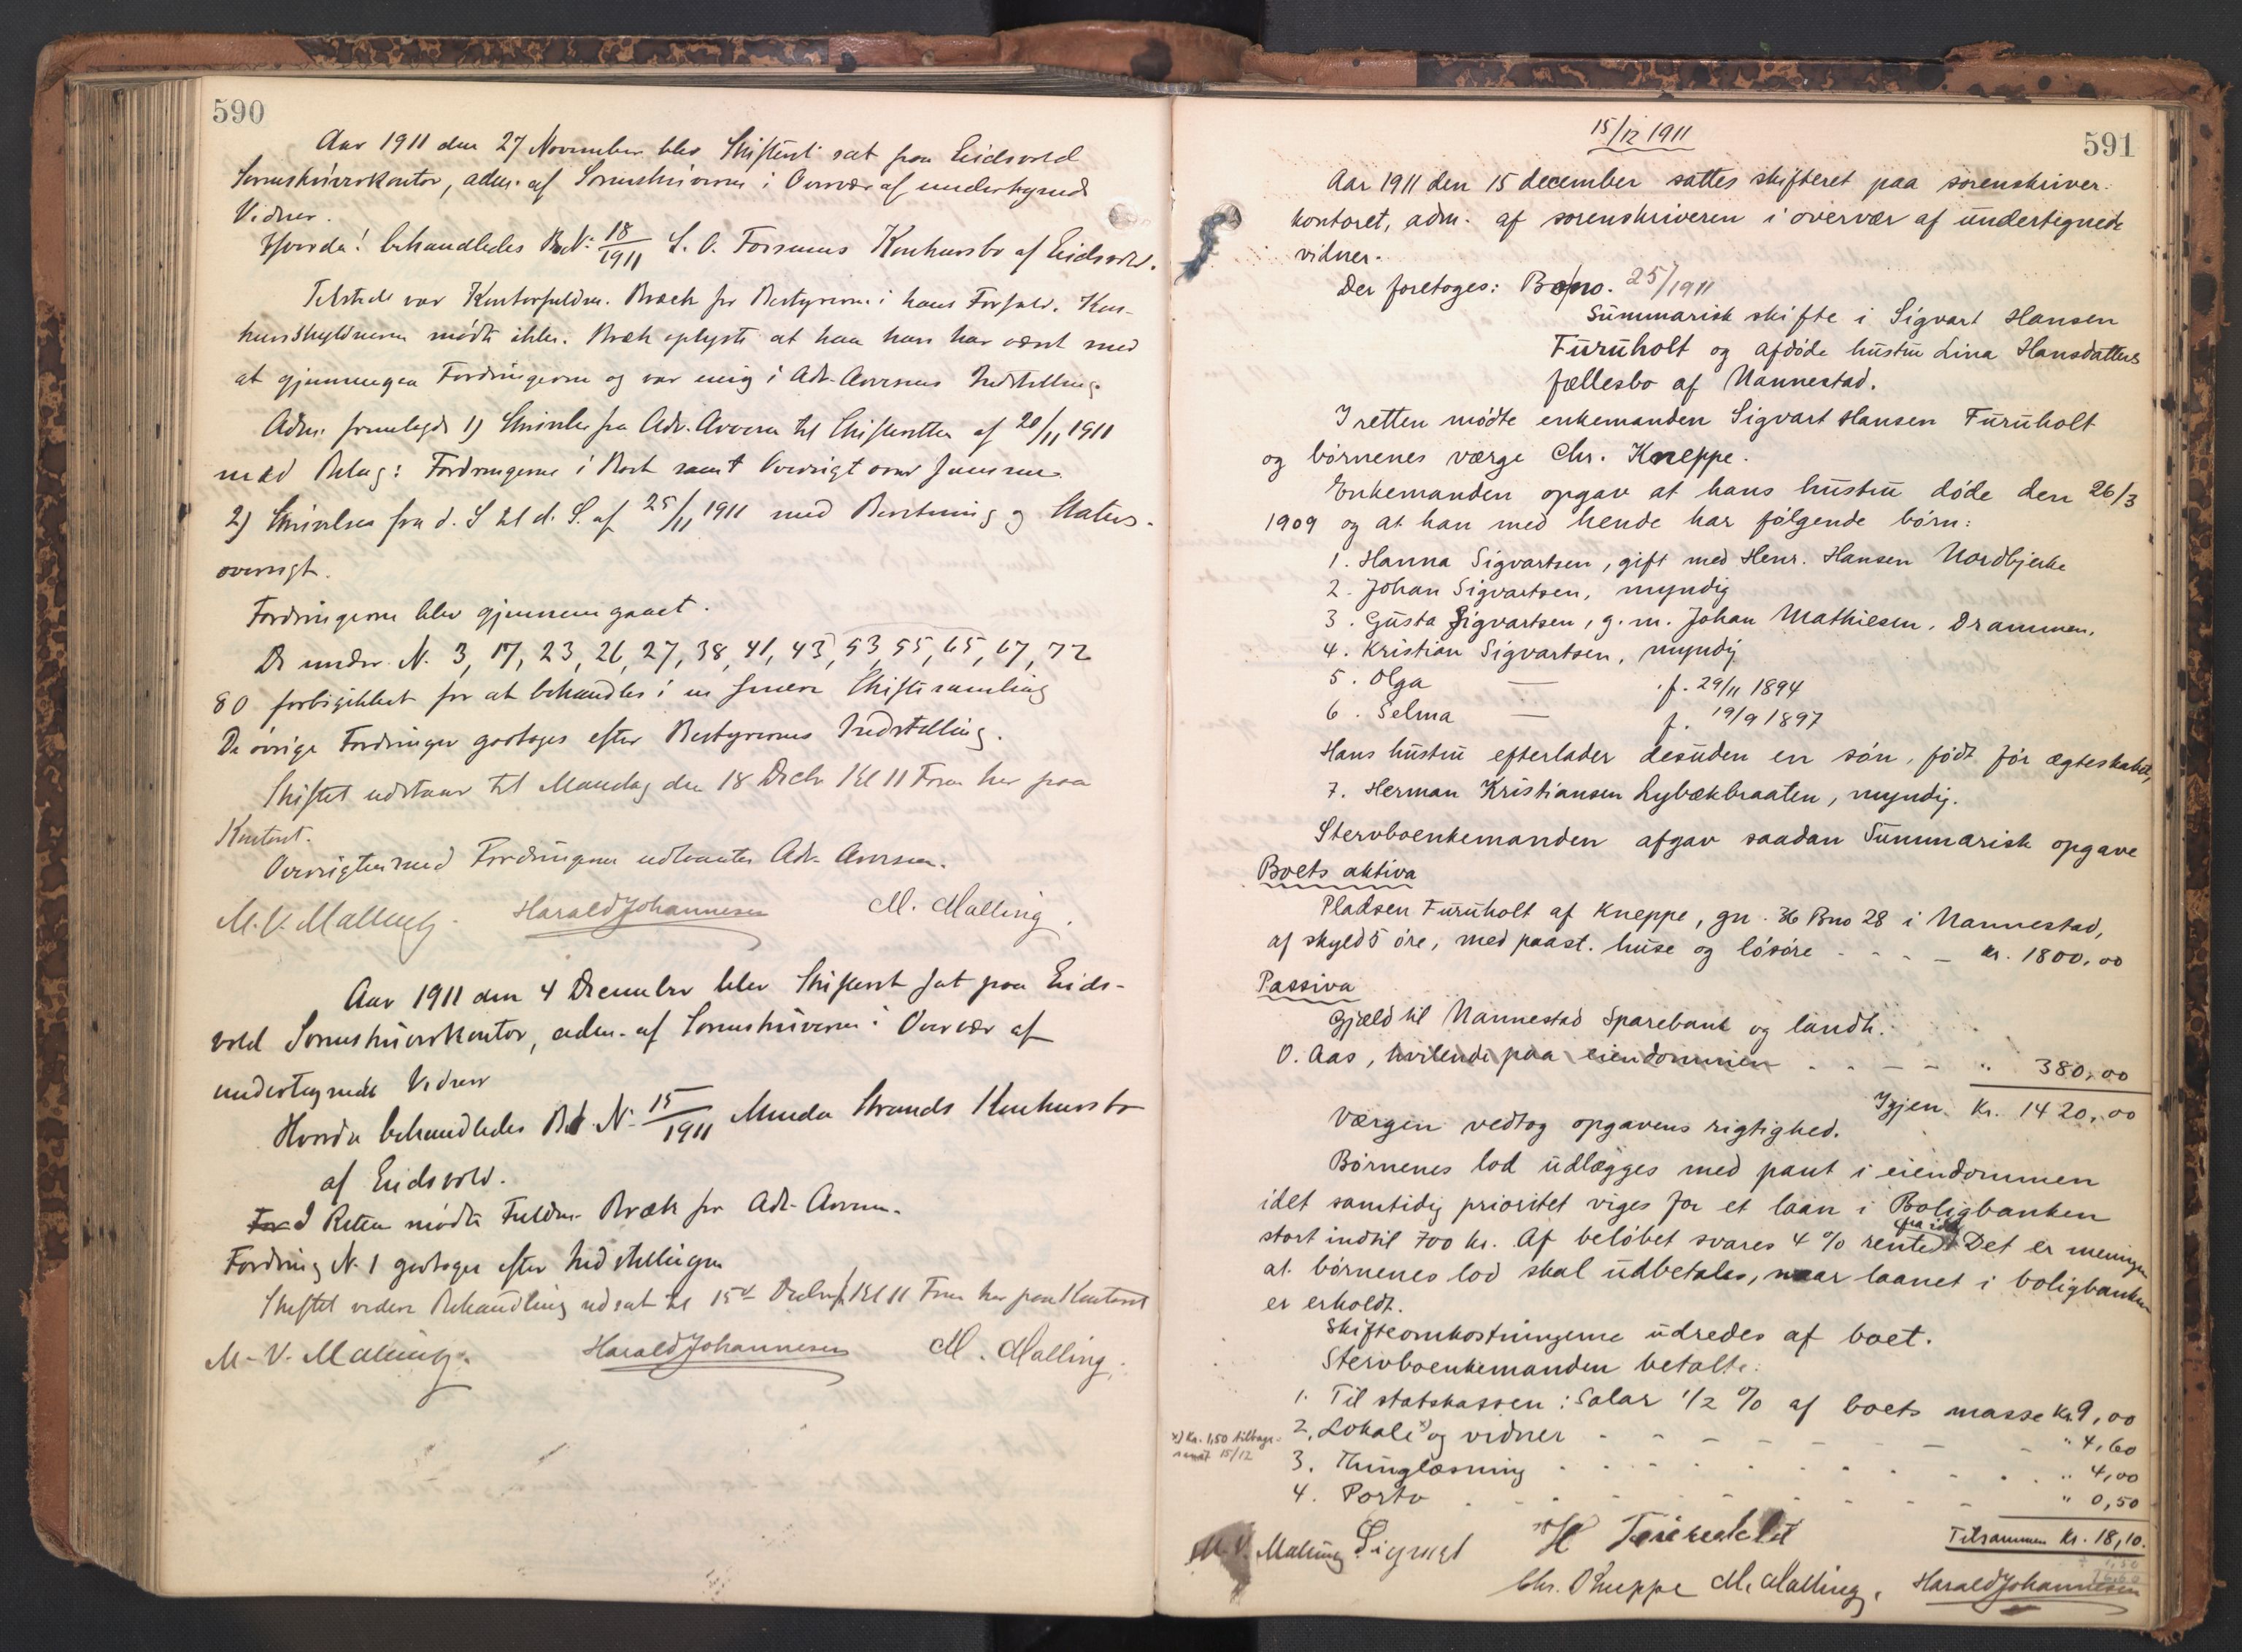 590
Aar 1911 den 27 November blev Skifteret sat paa Eidsvold
Sorenskriverkontor, adm. af Sorenskriveren i Overvær af undertegnede
Vidner.
Hvorda! behandledes Bo N: 18/1911 Konkursbo af Eidsvold.
Tilstede var Kontorfuldm. Bræck for Bestyreren i hans Forfald. Kon-
kursskyldneren mødte ikke. Bræk oplyste at han har været med
at gjennemgaa Fordringerne og var enig i Adv. Indstilling.
Adm. fremlagde 1) Skrivelse fra Adv. til Skifteretten af 20/11 1911
med Bilag: Fordringerne i samt Oversigt over
2) Skrivelse fra d. S til d. S. af 25/11 1911 med Beretning og Status-
oversigt.
Fordringerne blev gjennemgaaet.
De under N. 3, 17, 23, 26, 27, 38, 41, 43, 53, 55, 65, 67, 72
80 forbigikkes for at behandles i en senere Skiftesamling
De øvrige Fordringer godtoges efter Bestyrerens Indstilling.
Skiftet udstaar til Mandag den 18 Decbr Kl 11 Form her paa
Kontoret.
Oversigten med Fordringerne udlaantes Adv.
M. V. Malling. Harald Johannesen M. Malling.
Aar 1911 den 4 December blev Skifteret sat paa Eids-
vold Sorenskriverkontor, adm. af Sorenskriveren i Overvær af
undertegnede Vidner
Hvorda behandledes Bo. N. 15/1911 Strands Konkursbo
af Eidsvold.
I Retten mødte Fuldm. Bræk for Adv.
Fordring N. 1 godtoges efter Indstillingen
Skiftet videre Behandling udsat til 15de Decbr Kl 11 Form her paa Kontoret
M. V. Malling. Harald Johannesen M. Malling.
15/12 1911
591
Aar 1911 den 15 december sattes skifteret paa sorenskriver-
kontoret, adm. af sorenskriveren i overvær af undertegnede
vidner.
Der foretoges: Bo no. 25/1911
Summarisk skifte i Sigvart Hansen
Furuholt og afdøde hustru Lina Hansdatters
fællesbo af Nannestad.
I retten mødte enkemanden Sigvart Hansen Furuholt
og børnenes værge Chr. Kneppe.
Enkemanden opgav at hans hustru døde den 26/3
1909 og at han med hende har følgende børn:
1. Hanna Sigvartsen, gift med Henr. Hansen Nordbjerke
2. Johan Sigvartsen, myndig
3. Gusta Sigvartsen, g. m. Johan Mathiesen, Drammen.
4. Kristian Sigvartsen, myndig
5. Olga — f. 29/11 1894
6. Selma — f. 19/9 1897
Hans hustru efterlader desuden en søn, født før ægteskabet,
7. Herman Kristiansen Lybækbraaten, myndig.
Stervboenkemanden afgav saadan Summarisk opgave
Boets aktiva
Pladsen Furuholt af Kneppe, gn. 36 Bno 28 i Nannestad,
af skyld 5 øre, med paast. huse og løsøre - - - - kr. 1800,00
Passiva
Gjæld til Nannestad Sparebank og landh.
O. Aas, hvilende paa eiendommen - - - - " 380,00
Igjen Kr. 1420,00
Værgen vedtog opgavens rigtighed.
Børnenes lod udlægges med pant i eiendommen
idet samtidig prioritet viges for et laan i Boligbanken
stort indtil 700 kr. Af beløbet svares 4 % rente fra idag Det er meningen
at børnenes lod skal udbetales, naar laanet i boligbanken
er erholdt.
Skifteomkostningerne udredes af boet.
Stervboenkemanden betalte:
1. Til statskassen: Salær 1/2 % af boets masse Kr. 9,00
2. Lokale x) og vidner - - - - " 4,60
x) Kr. 1,50 tilbage-
sendt 15/12
3. Thinglæsning - - - - " 4,00
4. Porto - - - - " 0,50
Tilsammen Kr. 18,10.
÷ 1,50
16,60
M. V. Malling Sigvart H Furuholt
Chr. Kneppe M. Malling. Harald Johannesen